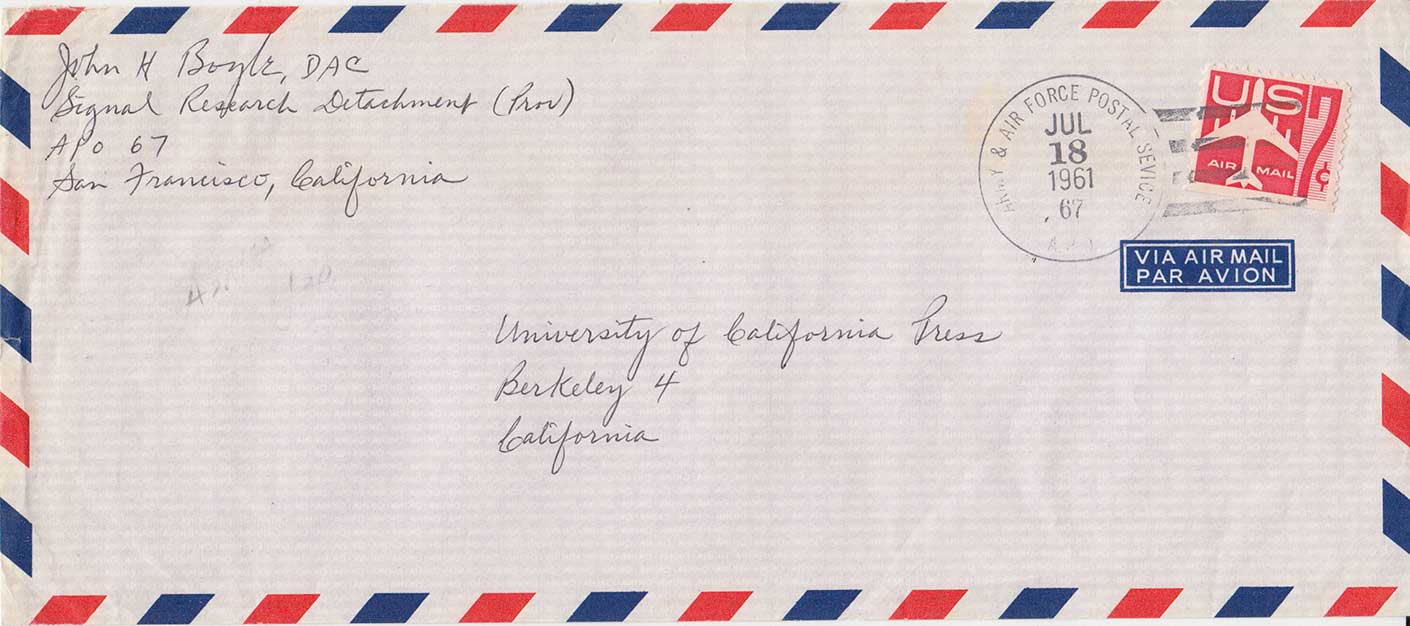 John H Boyle, DAC
Signal Research Detachment (Prov)
APO 67
San Francisco, California
ARMY & AIR FORCE POSTAL SEVICE
JUL
18
1961
67
A.P.O.
US
7¢
AIR MAIL
VIA AIR MAIL
PAR AVION
120
University of California Press
Berkeley 4
California